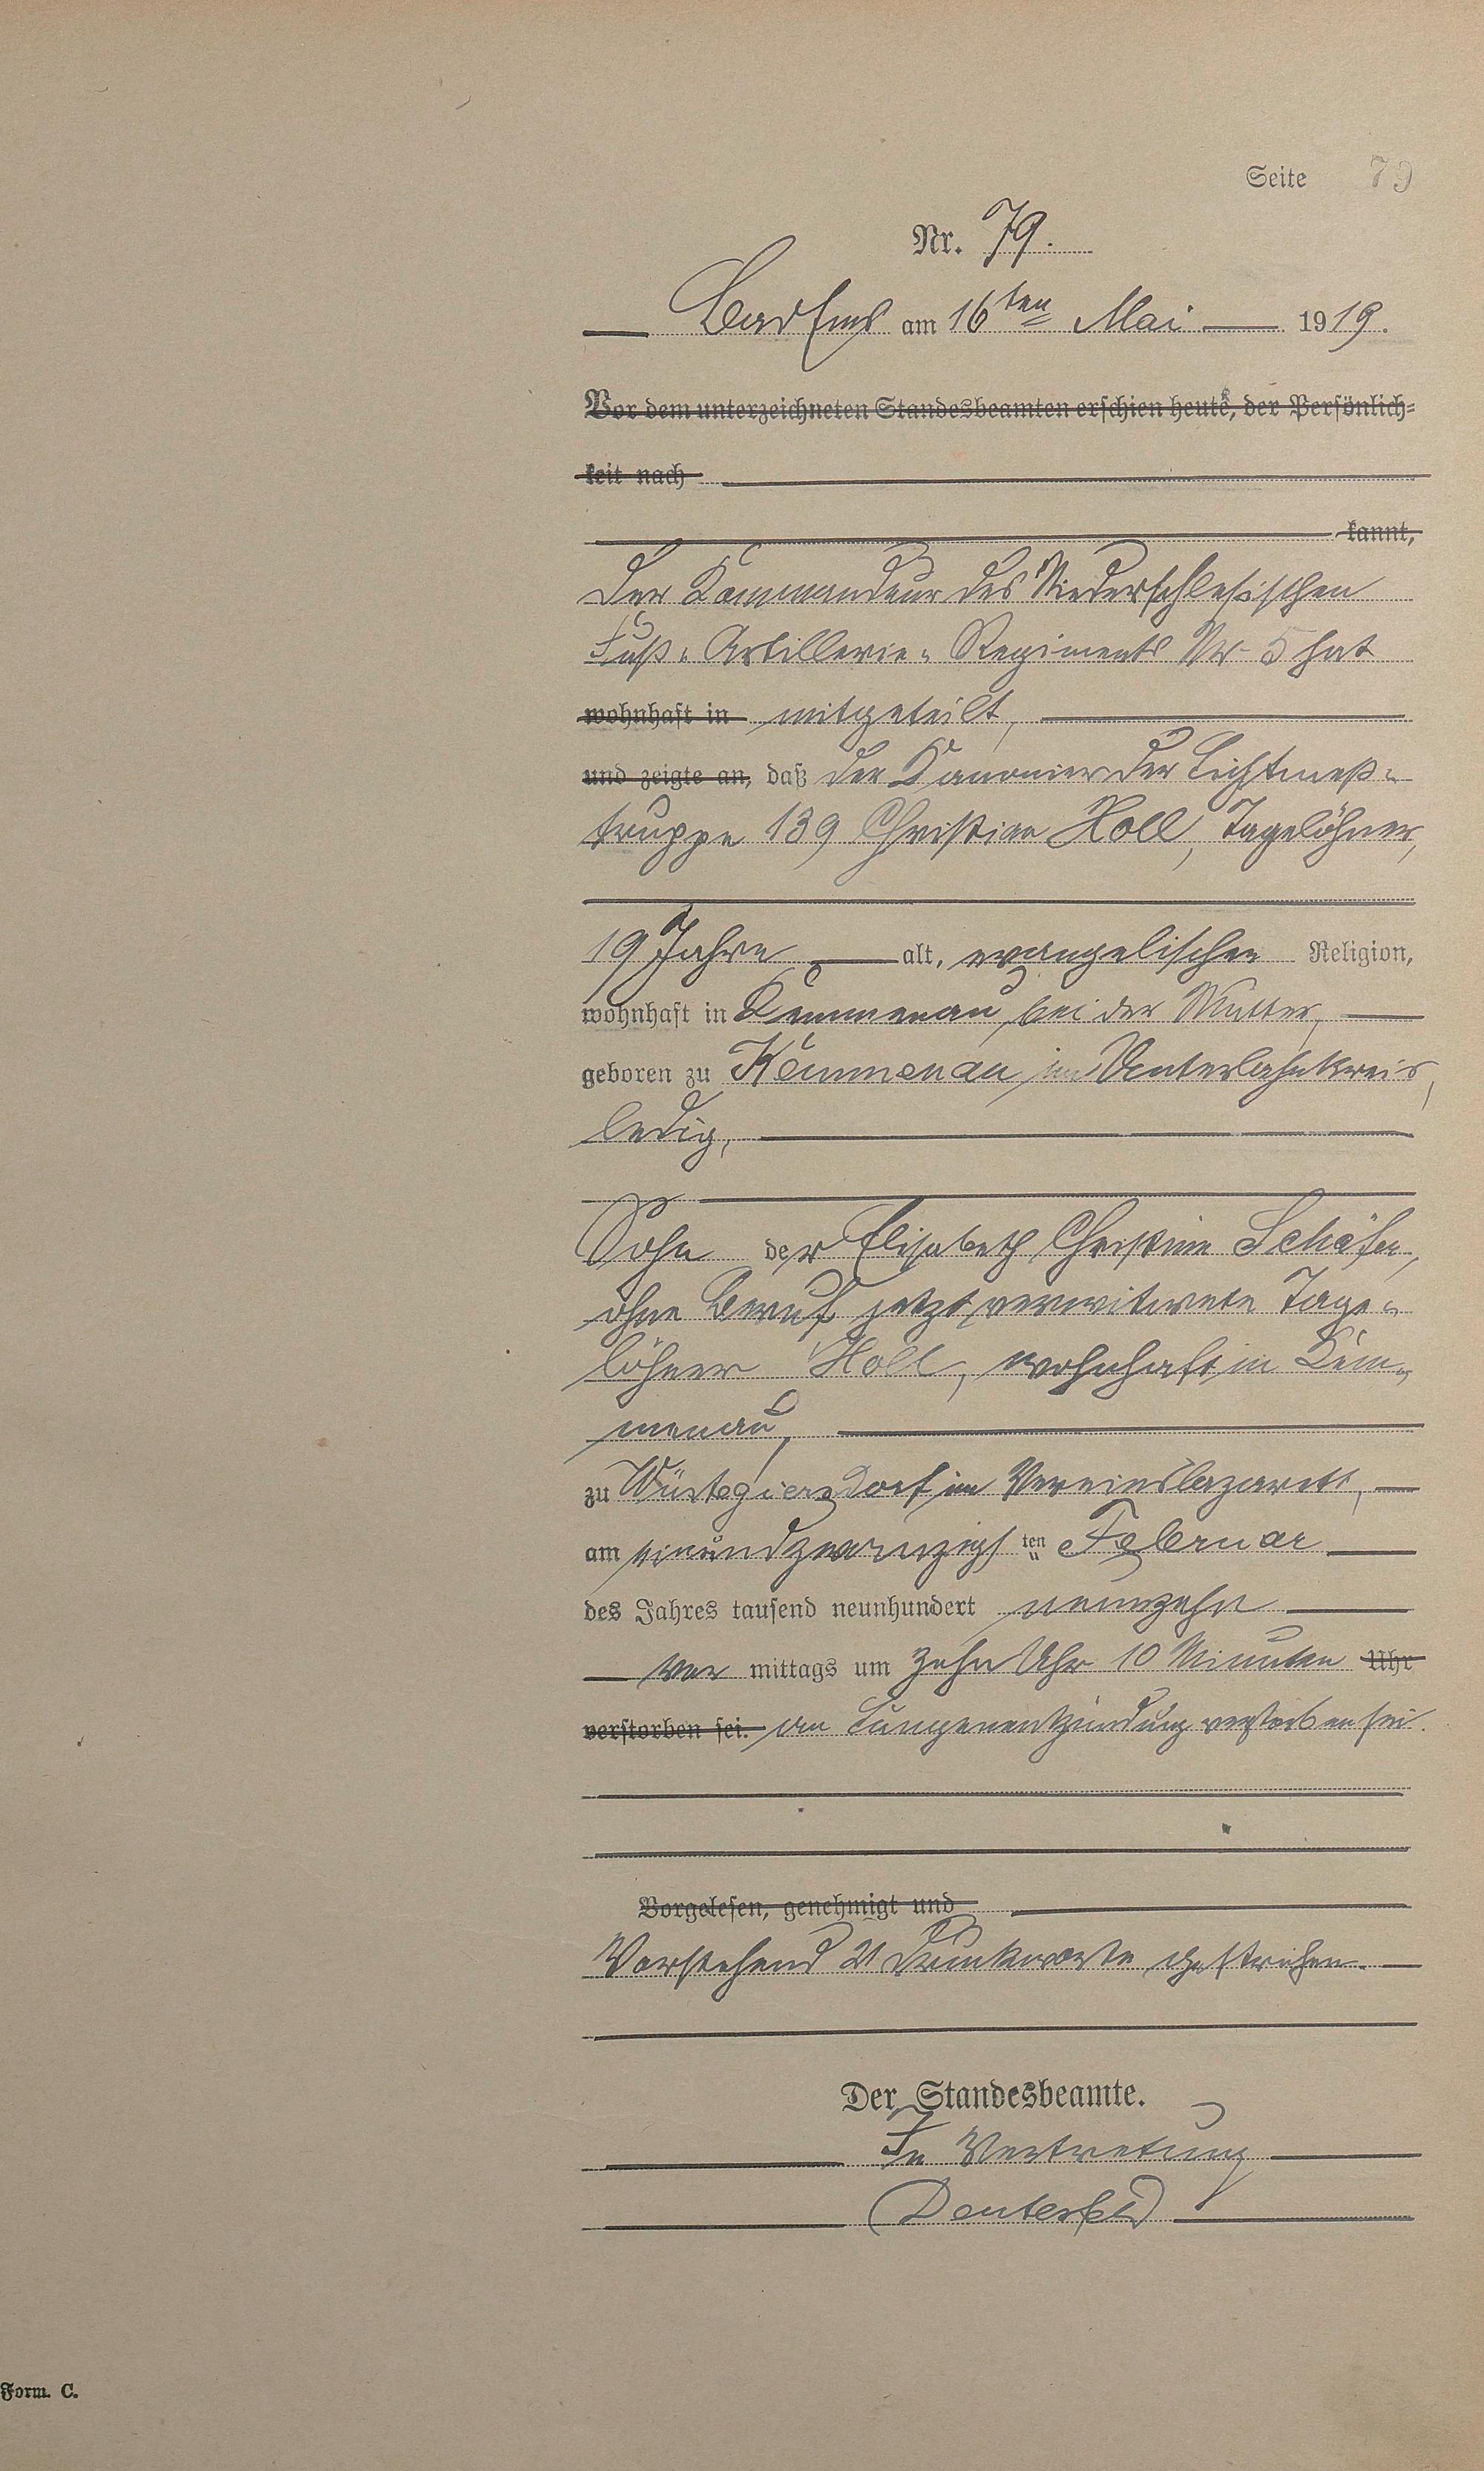 Seite 79
Nr. 79.
Bad Ems am 16ten Mai 1919.
Vor dem unterzeichneten Standesbeamten erschien heute, der Persönlich=
keit nach
kannt,
Der Kommandeur des Niederschlesischen
Fuß-Artillerie-Regiments Nr. 5 hat
wohnhaft in mitgeteilt,
und zeigte an, daß der Kanonier der Lichtmeß-
truppe 139 Christian Holl, Tagelöhner,
19 Jahre alt, evangelischer Religion,
wohnhaft in Kemmenau bei der Mutter,
geboren zu Kemmenau im Unterlahnkreis,
ledig,
Sohn der Elisabeth Christine Schäfer,
ohne Beruf, jetzt verwitwete Tage-
löhner Holl, wohnhaft in Kem-
menau,
zu Wüstegiersdorf im Vereinslazarett,
am einundzwanzigsten Februar
des Jahres tausend neunhundert neunzehn
vor mittags um zehn Uhr 10 Minuten Uhr
verstorben sei. an Lungenentzündung verstorben sei.
Vorgelesen, genehmigt und
Vorstehend 21 Druckworte gestrichen.
Der Standesbeamte.
In Vertretung
Form. C.